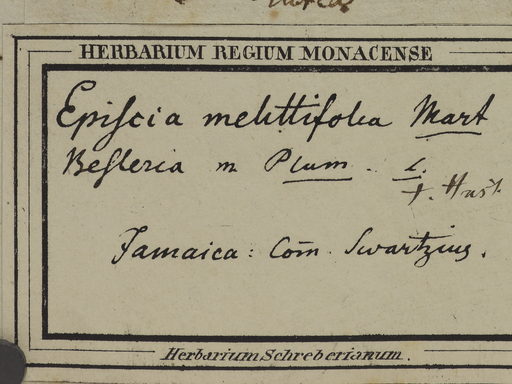 HERBARIUM REGIUM MONACENSE
Epiſcia melittifolia Mart
Beſleria m Plum. L.
Jamaica: Com̄. Swartzius.
Herbarium Schreberianum.